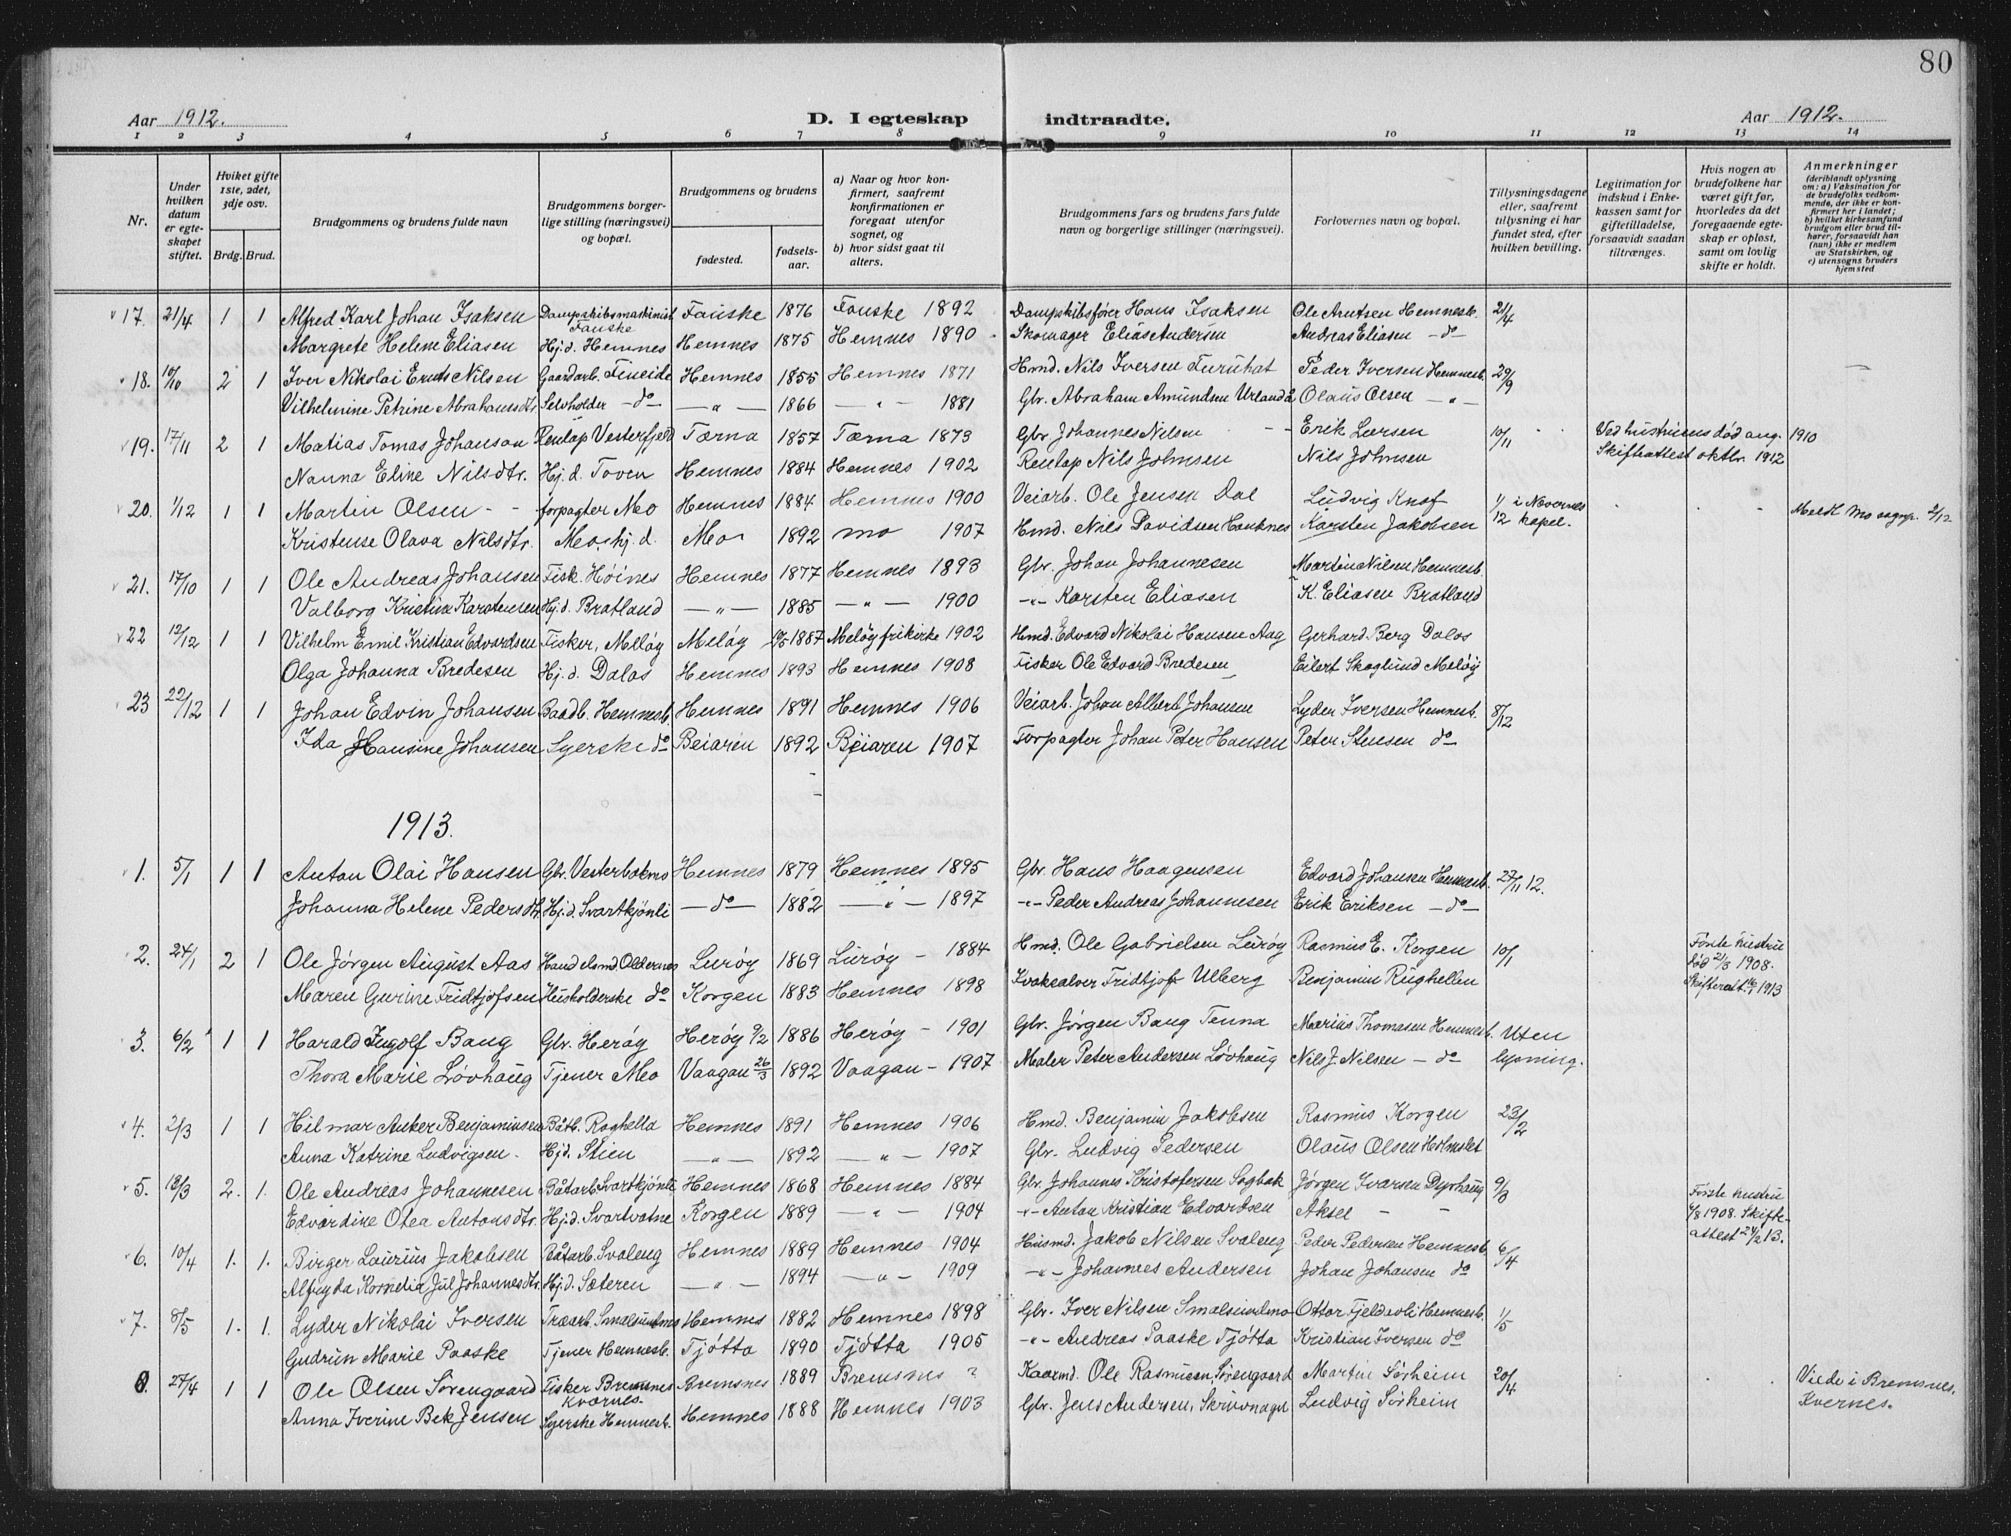 80
Aar 1912. D. I egteskap indtraadte. Aar 1912.
1 2 3 4 5 6 7 8 9 10 11 12 13 14
Nr.
Under hvilken datum er egteskapet stiftet.
Hvilket gifte 1ste, 2det, 3dje osv.
Brdg. Brud.
Brudgommens og brudens fulde navn
Brudgommens borgerlige stilling (næringsvei) og bopæl.
Brudgommens og brudens
fødested. fødselsaar.
a) Naar og hvor konfirmert, saafremt konfirmationen er foregaat utenfor sognet, og
b) hvor sidst gaat til alters.
Brudgommens fars og brudens fars fulde navn og borgerlige stillinger (næringsvei).
Forlovernes navn og bopæl.
Tillysningsdagene eller, saafremt tillysning ei har fundet sted, efter hvilken bevilling.
Legitimation for indskud i Enkekassen samt for giftetilladelse, forsaavidt saadan tiltrænges.
Hvis nogen av brudefolkene har været gift før, hvorledes da det foregaaende egteskap er opløst, samt om lovlig skifte er holdt.
Anmerkninger
(deriblandt oplysning om: a) Vaksination for de brudefolks vedkommende, der ikke er konfirmert her i landet; b) hvilket kirkesamfund brudgom eller brud tilhører, forsaavidt han (hun) ikke er medlem av Statskirken, og c) utensogns bruders hjemsted
17. 21/4 1 1 Alfred Karl Johan Isaksen Dampskibsmaskinist Fauske Fauske 1876 Fauske 1892 Dampskibsfører Hans Isaksen Ole Arntsen Hemnesb. 21/4
Margrete Helene Eliasen Hj.d. Hemnes Hemnes 1875 Hemnes 1890 Skomager Elias Andersen Andreas Eliasen - do
18. 10/10 2 1 Iver Nikolai Ernts Nilsen Gaardarb. Fineide Hemnes 1855 Hemnes 1871 Hmd. Nils Iversen Furuhat Peder Iversen Hemnesb. 29/9
Vilhelmine Petrine Abrahamsdtr. Selvholder - do - - " - 1866 - " - 1881 Gbr. Abraham Amundsen Urland Olaus Olsen - " -
19. 17/11 2 1 Matias Tomas Johanson Renlap Vesterfjeld Tærna 1857 Tærna 1873 Gbr. Johannes Nilsen Erik Larsen 10/11 Ved hustruens død aug. 1910
Nanna Eline Nilsdtr. Hj.d. Toven Hemnes 1884 Hemnes 1902 Renlap Nils Johnsen Nils Johnsen Skifteattest oktbr. 1912
20. 1/12 1 1 Martin Olsen forpagter Mo Hemnes 1884 Hemnes 1900 Veiarb. Ole Jensen Dal Ludvig Knof 1/12 i Nevernes kapel. Meldt Mo sogn. 2/12
Kristense Olava Nilsdtr. Mo, hj.d. Mo 1892 Mo 1907 Hmd. Nils Davidsen Hauknes Karsten Jakobsen
21. 17/10 1 1 Ole Andreas Johansen Fisk. Høines Hemnes 1877 Hemnes 1893 Gbr. Johan Johannesen Martin Nilsen Hemnesb.
Valborg Kristina Karstensen Hj.d. Bratland - " - 1885 - " - 1900 - " - Karsten Eliasen K. Eliasen Bratland
22 12/12 1 1 Vilhelm Emil Kristian Edvardsen Fisker, Meløy Meløy 1887 Meløy frikirke 1902 Hmd. Edvard Nikolai Hansen Aag Gerhard Berg Dalos
Olga Johanna Bredesen Hj.d. Dalos Hemnes 1893 Hemnes 1908 Fisker Ole Edvard Bredesen Eilert Skoglund Meløy
23 22/12 1 1 Johan Edvin Johansen Baadb. Hemnesb. Hemnes 1891 Hemnes 1906 Veiarb. Johan Albert Johansen Lyder Iversen Hemnesb. 8/12
Ida Hansine Johansen Syerske do Beiaren 1892 Beiaren 1907 Forpagter Johan Peter Hansen Peter Stensen do
1913.
1. 5/1 1 1 Anton Olai Hansen Gbr. Vesterbotnes Hemnes 1879 Hemnes 1895 Gbr. Hans Haagensen Edvard Johansen Hemnesb. 27/11 12.
Johanna Helene Pedersdtr. Hj.d. Svartkjønli - do - 1882 - " - 1897 - " - Peder Andreas Johannesen Erik Eriksen - do -
2. 24/1 2 1 Ole Jørgen August Aas Handelsmd. Oldernes Lurøy 1869 Lurøy - 1884 Hmd. Ole Gabrielsen Lurøy Rasmus E. Korgen 10/1 Første hustru død 21/3 1908.
Maren Gurine Fridtjofsen Husholderske do Korgen 1883 Hemnes 1898 Kvaksalver Fridtjof Ulberg Benjamin Rughellen Skifteatt. 1913
3. 6/2 1 1 Harald Ingolf Bang Gbr. Herøy Herøy 9/2 1886 Herøy - 1901 Gbr. Jørgen Bang Tenna Marius Thomasen Hemnesb. Uten lysning.
Thora Marie Løvhaug Tjener Mo Vaagan 26/3 1892 Vaagan - 1907 Maler Peter Andersen Løvhaug Nils J. Nilsen - do
4. 2/3 1 1 Hilmar Anker Benjaminsen Båtb. Roghella Hemnes 1891 Hemnes 1906 Hmd. Benjamin Jakobsen Rasmus Korgen 23/2
Anna Katrine Ludvigsen. Hjd. Stien - " - 1892 - " - 1907 Gbr. Ludvig Pedersen Olaus Olsen Holmslet
5. 18/3 2. 1. Ole Andreas Johannesen Båtarb. Svartkjønli Hemnes 1868 Hemnes 1884 Gbr. Johannes Kristofersen Sagbak Jørgen Ivarsen Dyrhaug 9/3 Første hustru
Edvardine Otea Antonsdtr. Hj.d. Svartvatne Korgen 1889 - " - 1904 - " - Anton Kristian Edvardsen Aksel - - 1/8 1908. Skifteattest 21/2 13.
6. 10/4 1. 1. Birger Laurius Jakobsen Båtarb. Svaleng Hemnes 1889 Hemnes 1904 Husmd. Jakob Nilsen Svaleng Peder Pedersen Hemnesb. 6/4
Alfryda Kornelia Jul Johannesdtr. Hj.d. Sæteren - " - 1894 - " - 1909 - " - Johannes Andersen Johan Johansen do
7. 8/5 1. 1. Lyder Nikolai Iversen Træarb. Smalsundnes Hemnes 1882 Hemnes 1898 Gbr. Iver Nilsen Smalsundmo Ottar Fjeldavli Hemnesb. 1/5
Gudrun Marie Paaske Tjener Hemnesb. Tjøtta 1890 Tjøtta 1905 - " - Andreas Paaske Tjøtta Kristian Iversen do
8. 27/4 1 1 Ole Olsen Sørengaard Fisker Bremsnes Kværnes Bremsnes 1889 Bremsnes ? Kaarmd. Ole Rasmusen, Sørengaard Martin Sørheim 20/4 Viede i Bremsnes, Kvernes.
Anna Iverine Bek Jensen Syerske Hemnesb. Hemnes 1888 Hemnes 1903 Gbr. Jens Andersen, Skrivnagel Ludvig Sørheim